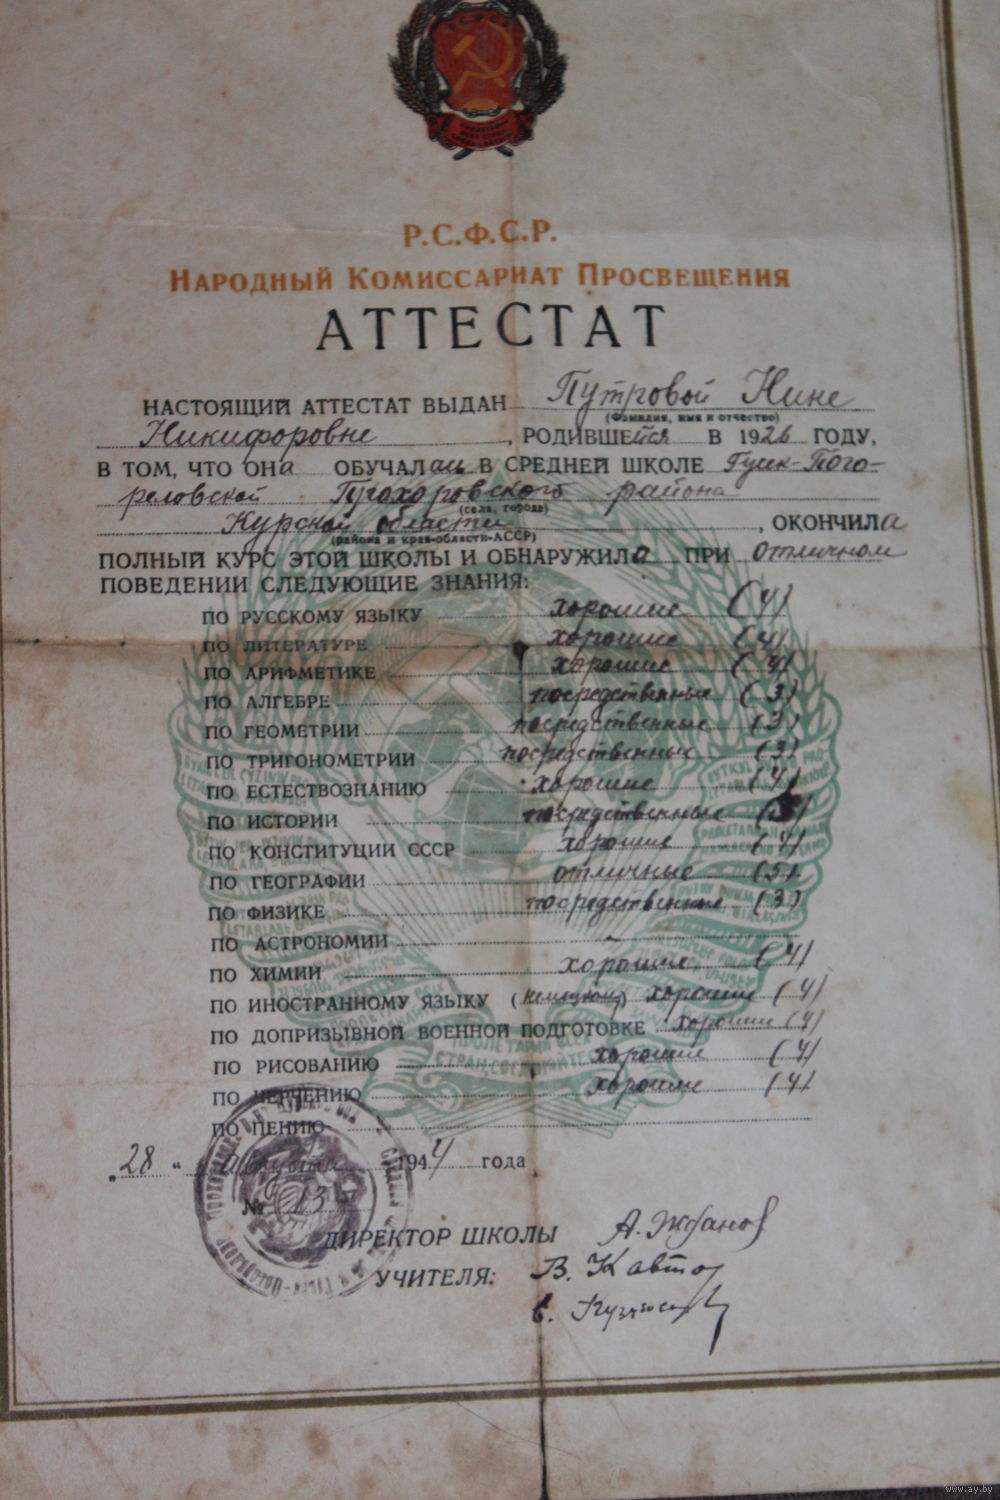 Р.С.Ф.С.Р.
Народный Комиссариат Просвещения
АТТЕСТАТ
НАСТОЯЩИЙ АТТЕСТАТ ВЫДАН Путровой Нине
(Фамилия, имя и отчество)
Никифоровне, РОДИВШЕЙСЯ В 1926 ГОДУ,
В ТОМ, ЧТО ОНа ОБУЧАЛась В СРЕДНЕЙ ШКОЛЕ Гуск-Пого-
реловской района
(села, города)
Курской области, ОКОНЧИЛа
(района и края-области-АССР)
ПОЛНЫЙ КУРС ЭТОЙ ШКОЛЫ И ОБНАРУЖИЛа ПРИ отличном
ПОВЕДЕНИИ СЛЕДУЮЩИЕ ЗНАНИЯ:
ПО РУССКОМУ ЯЗЫКУ хорошие (4)
ПО ЛИТЕРАТУРЕ хорошие (4)
ПО АРИФМЕТИКЕ хорошие (4)
ПО АЛГЕБРЕ посредственные (3)
ПО ГЕОМЕТРИИ посредственные (3)
ПО ТРИГОНОМЕТРИИ посредственные (3)
ПО ЕСТЕСТВОЗНАНИЮ хорошие (4)
ПО ИСТОРИИ посредственные (3)
ПО КОНСТИТУЦИИ СССР хорошие (4)
ПО ГЕОГРАФИИ отличные (5)
ПО ФИЗИКЕ посредственные (3)
ПО АСТРОНОМИИ –
ПО ХИМИИ хорошие (4)
ПО ИНОСТРАННОМУ ЯЗЫКУ (немецкому) хорошие (4)
ПО ДОПРИЗЫВНОЙ ВОЕННОЙ ПОДГОТОВКЕ хорошие (4)
ПО РИСОВАНИЮ хорошие (4)
ПО ЧЕРЧЕНИЮ хорошие (4)
ПО ПЕНИЮ
„28" августа 1944 года
№ 13
ДИРЕКТОР ШКОЛЫ А. Жданов
УЧИТЕЛЯ: В.
www.ay.by